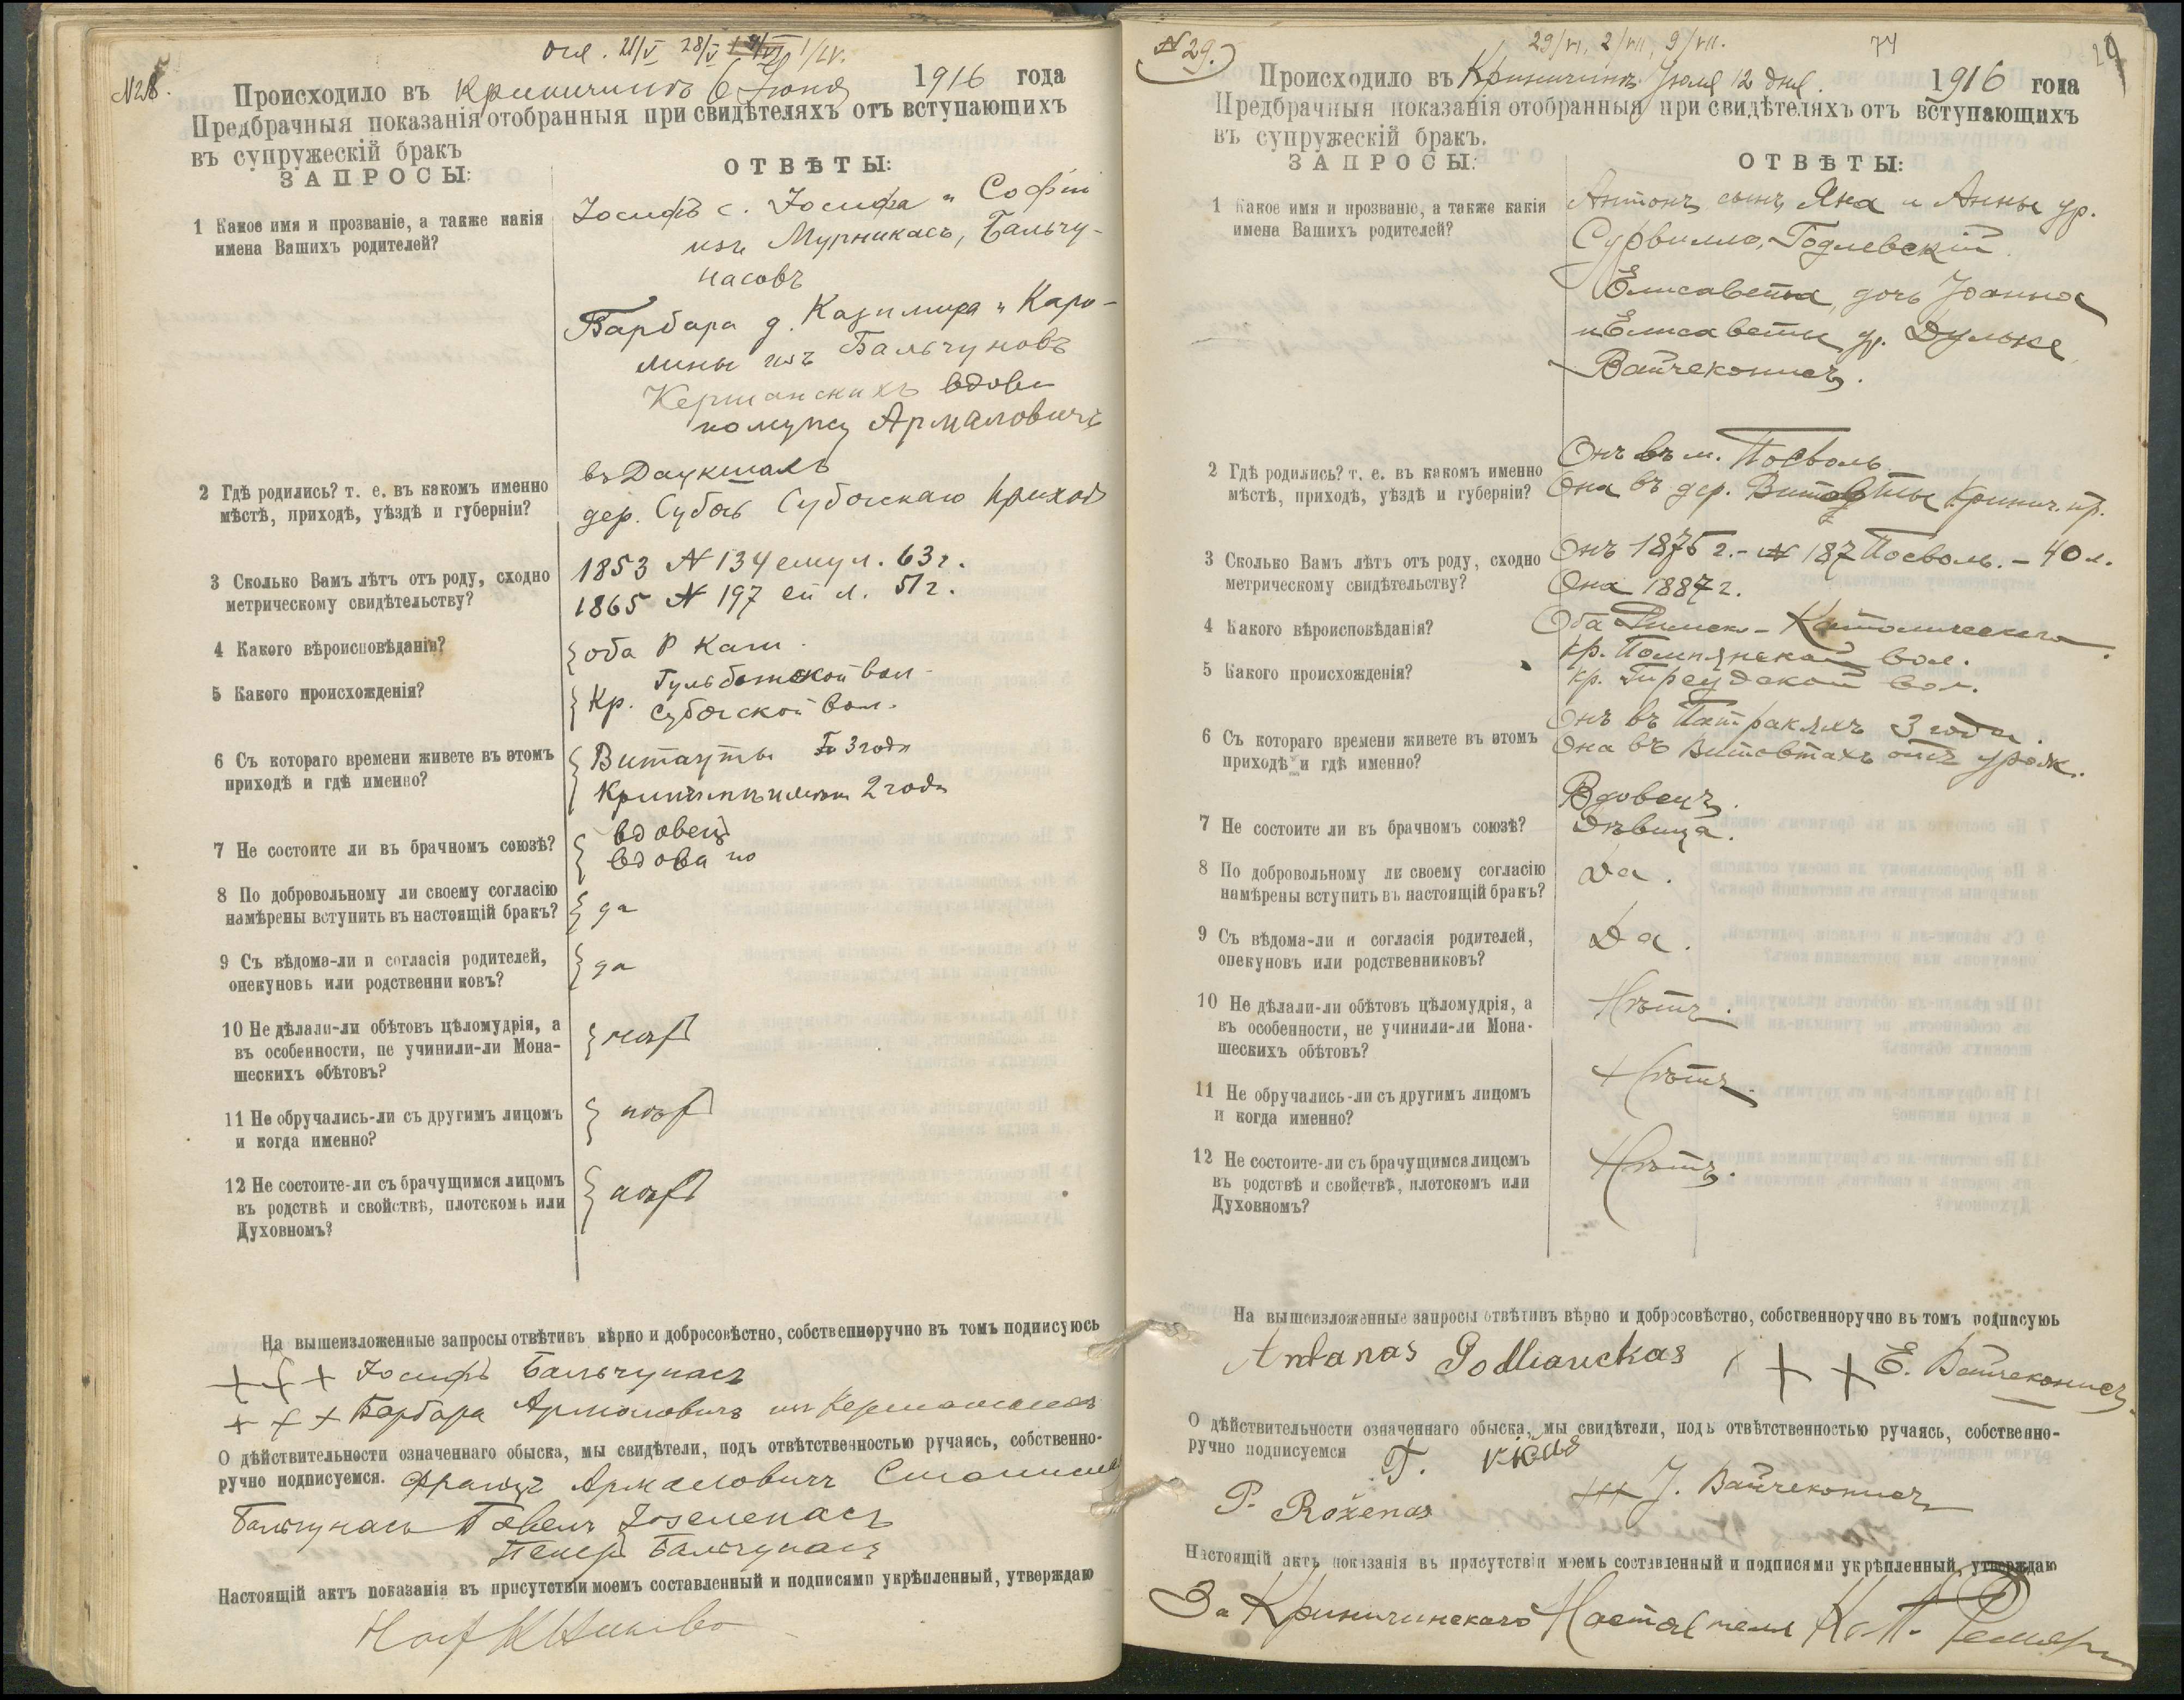 №28.
огл. 21/V 28/V 1/IV.
Происходило въ Криничинѣ 6 Іюня 1916 года
Предбрачныя показанія отобранныя при свидѣтеляхъ отъ вступающихъ
въ супружескій бракъ
ЗАПРОСЫ:
ОТВѢТЫ:
1 Какое имя и прозваніе, а также какія
имена Вашихъ родителей?
Іосифъ с. Іосифа и Софіи
изъ Мурникасъ, Бальчу-
насовъ
Барбара д. Казимира и Каро-
лины изъ Бальчуновъ
Кершанскихъ вдова
по мужу Армаловичъ
2 Гдѣ родились? т. е. въ какомъ именно
мѣстѣ, приходѣ, уѣздѣ и губерніи?
въ Даукшахъ
дер. Субочь Субочскаго приход
3 Сколько Вамъ лѣтъ отъ роду, сходно
метрическому свидѣтельству?
1853 № 134 ему л. 63 г.
1865 № 197 ей л. 51 г.
4 Какого вѣроисповѣданія?
оба Р Кат.
5 Какого происхожденія?
Кр. вол.
Субочской вол.
6 Съ котораго времени живете въ этомъ
приходѣ и гдѣ именно?
Витауты 3 года
2 года
7 Не состоите ли въ брачномъ союзѣ?
вдовецъ
вдова по
8 По добровольному ли своему согласію
намѣрены вступить въ настоящій бракъ?
да
9 Съ вѣдома-ли и согласія родителей,
опекуновъ или родственни ковъ?
да
10 Не дѣлали-ли обѣтовъ цѣломудрія, а
въ особенности, не учинили-ли Мона-
шескихъ обѣтовъ?
нѣтъ
11 Не обручались-ли съ другимъ лицомъ
и когда именно?
нѣтъ
12 Не состоите-ли съ брачущимся лицомъ
въ родствѣ и свойствѣ, плотскомъ или
Духовномъ?
нѣтъ
На вышеизложенные запросы отвѣтивъ вѣрно и добросовѣстно, собственноручно въ томъ подписуюсь
+++ Іосифъ Бальчунасъ
+++ Барбара Армоловичъ
О дѣйствительности означеннаго обыска, мы свидѣтели, подъ отвѣтственностью ручаясь, собственно-
ручно подписуемся. Францъ Армаловичъ
Бальчунасъ Павелъ
Петръ Бальчунасъ
Настоящій актъ показанія въ присутствіи моемъ составленный и подписями укрѣпленный, утверждаю
№ 29.
29/VI, 2/VII, 9/VII.
74
29
Происходило въ Криничинѣ Іюля 12 дня. 1916 года
Предбрачныя показанія отобранныя при свидѣтеляхъ отъ вступающихъ
въ супружескій бракъ.
ЗАПРОСЫ:
ОТВѢТЫ:
1 Какое имя и прозваніе, а также какія
имена Вашихъ родителей?
Антонъ сынъ Яна и Анны ур.
Сурвилло, Годлевскій.
Елисавета, дочь Іоанна
и Елисаветы ур. Дульке
Вайчеконисъ.
2 Гдѣ родились? т. е. въ какомъ именно
мѣстѣ, приходѣ, уѣздѣ и губерніи?
Онъ въ м. Посволь
Она въ дер. Витовты Кринич. пр.
3 Сколько Вамъ лѣтъ отъ роду, сходно
метрическому свидѣтельству?
Онъ 1875 г. - № 187 Посволь. - 40 л.
Она 1887 г.
4 Какого вѣроисповѣданія?
Оба Римско-Католическаго.
5 Какого происхожденія?
кр. Помпянской вол.
кр. Гирсудской вол.
6 Съ котораго времени живете въ этомъ
приходѣ и гдѣ именно?
Онъ въ Патракяхъ 3 года.
Она въ Витовтахъ отъ урож.
7 Не состоите ли въ брачномъ союзѣ?
Вдовецъ.
Дѣвица.
8 По добровольному ли своему согласію
намѣрены вступить въ настоящій бракъ?
Да.
9 Съ вѣдома-ли и согласія родителей,
опекуновъ или родственниковъ?
Да.
10 Не дѣлали-ли обѣтовъ цѣломудрія, а
въ особенности, не учинили-ли Мона-
шескихъ обѣтовъ?
Нѣтъ.
11 Не обручались-ли съ другимъ лицомъ
и когда именно?
Нѣтъ.
12 Не состоите-ли съ брачущимся лицомъ
въ родствѣ и свойствѣ, плотскомъ или
Духовномъ?
Нѣтъ.
На вышеизложенные запросы отвѣтивъ вѣрно и добросовѣстно, собственноручно въ томъ подписуюь
Antanas Godliauckas + + + Е. Вайчеконисъ.
О дѣйствительности означеннаго обыска, мы свидѣтели, подъ отвѣтственностью ручаясь, собственно-
ручно подписуемся
P. Roženas +++ J. Вайчеконисъ
Настоящій актъ показанія въ присутствіи моемъ составленный и подписями укрѣпленный, утверждаю
За Криничинскаго Настоятеля